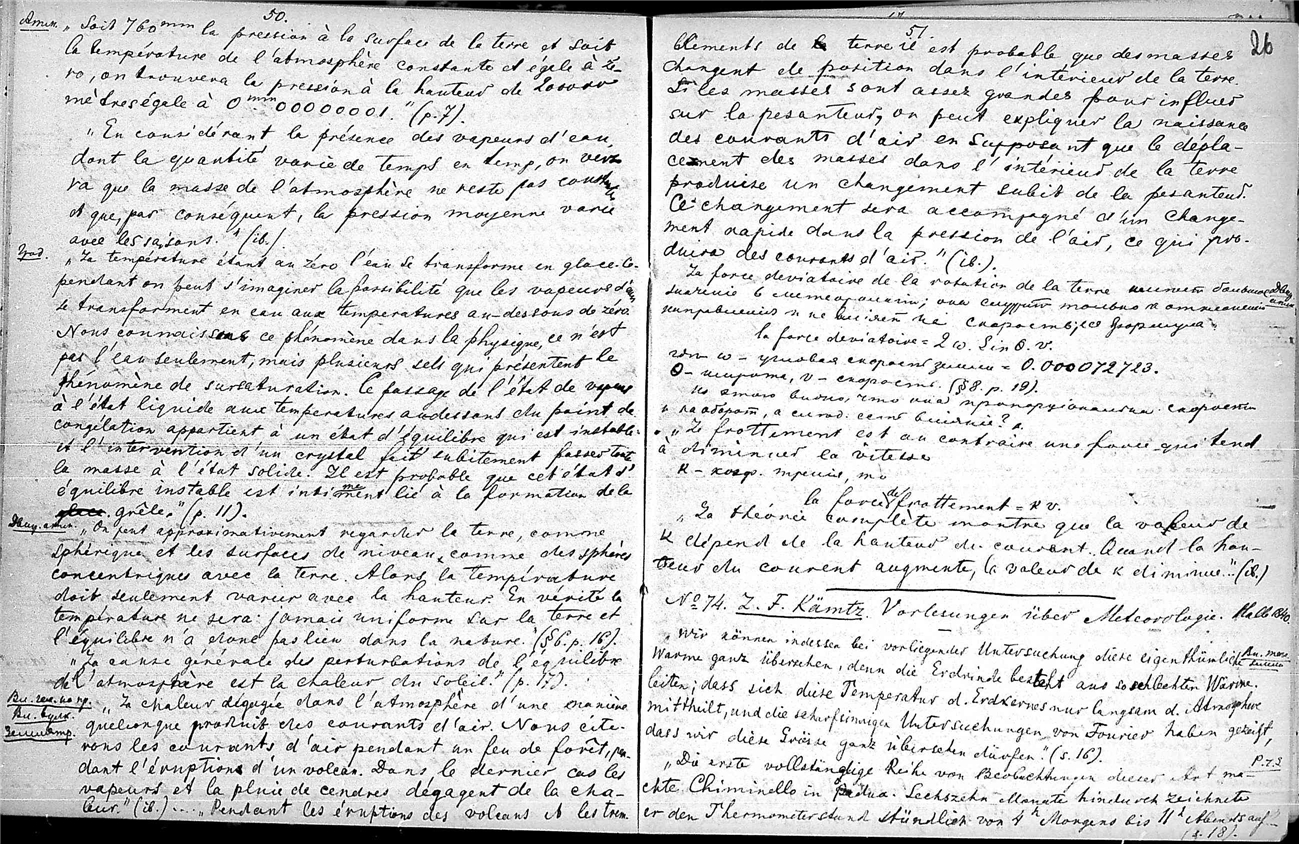 50.
Атм. „Soit 760mm la pression à la surface de la terre et soit
la température de l'atmosphère constante et égale à zé-
ro, on trouvera la pression à la hauteur de 200000
mètres égale à 0mm00000001." (p. 7).
„En considérant la présence des vapeurs d'eau
dont la quantité varie de temps en temp, on ver-
ra que la masse de l'atmosphère ne reste pas constante
et que, par conséquent, la pression moyenne varie
avec les saisons." (ib.)
Град. „La température étant au zéro l'eau se transforme en glace. Ce-
pendant on peut s'imaginer la possibilité que les vapeurs d'eau
se transforment en eau aux températures au-dessous de zéro.
Nous connaissons ce phénomène dans la physique, ce n'est
pas l'eau seulement, mais plusieurs sels qui présentent le
phénomène de sursaturation. Ce passage de l'état de vapeurs
à l'état liquide aux températures audessous du point de
congilation appartient à un état d'équilibre qui est instable
et l'intervention d'un crystal fait subitement passer toute
la masse à l'état solide. Il est probable que cet état d'
équilibre instable est intimement lié à la formation de la
grêle." (p. 11).
„On peut approximativement regarder la terre, comme
sphérique et les surfaces de niveau, comme des sphères
concentriques avec la terre. Alors la température
doit seulement varier avec la hauteur. En vérité la
température ne sera jamais uniforme sur la terre et
l'équilibre n'a donc pas lieu dans la nature. (§6. p. 16).
„La cause générale des perturbations de l'equilibre
de l'atmosphère est la chaleur du soleil." (p. 17).
„La chaleur dégagée dans l'atmosphère d'une manière
quelconque produit des courants d'air. Nous cite-
rons les courants d'air pendant un feu de forêt, pen-
dant l'éruptions d'un volcan. Dans le dernier cas les
vapeurs et la pluie de cendres dégagent de la cha-
leur." (ib.) .... „Pendant les éruptions des volcans et les trem-
51.
26
blements de la terre il est probable, que des masses
changent de position dans l'intérieur de la terre.
Si les masses sont assez grandes pour influer
sur la pesanteur, on peut expliquer la naissance
des courants d'air en supposant que le dépla-
cement des masses dans l'intérieur de la terre
produise un changement subit de la pesanteur.
Ce changement sera accompagné d'un change-
ment rapide dans la pression de l'air, ce qui pro-
duira des courants d'air." (ib.).
La force deviatoire de la rotation de la terre имеет большое
значение в метеорологии; она служит только к отклонению
направления и не влияет на скорость; ее формула
la force deviatoire = 2 w. Sin θ. v.
где w – угловая скорость земли = 0.000072723.
θ – широта, v – скорость. (§8. p. 19).
из этого видно, что она пропорциональна скорости
„Le frottement est au contraire une force qui tend
à diminuer la vitesse
κ – коэф. трения, то
la force de frottement = κ v.
„La théorie complète montre que la valeur de
κ dépend de la hauteur du courant. Quand la hau-
teur du courent augmente, la valeur de κ diminue." (ib.)
No 74. L. F. Kämtz. Vorlesungen über Meteorologie. Halle 1840.
„Wir können indessen bei vorliegender Untersuchung diese eigenthümliche
Wärme ganz übersehen, denn die Erdrinde besteht aus so schlechten Wärme-
leiten; dass sich diese Temperatur d. Erdkernes nur langsam d. Atmosphäre
mittheilt, und die scharfsinnigen Untersuchungen von Fourier haben gezeigt,
dass wir diese Grösse ganz übersehen dürfen." (s. 16).
„Die erste vollständige Reihe von Beobachtungen dieser Art ma-
chte Chiminello in Padua. Sechszehn Monate hindurch zeichnete
er den Thermometerstand stündlich von 4h Morgens bis 11h Abends auf."
(s. 18).